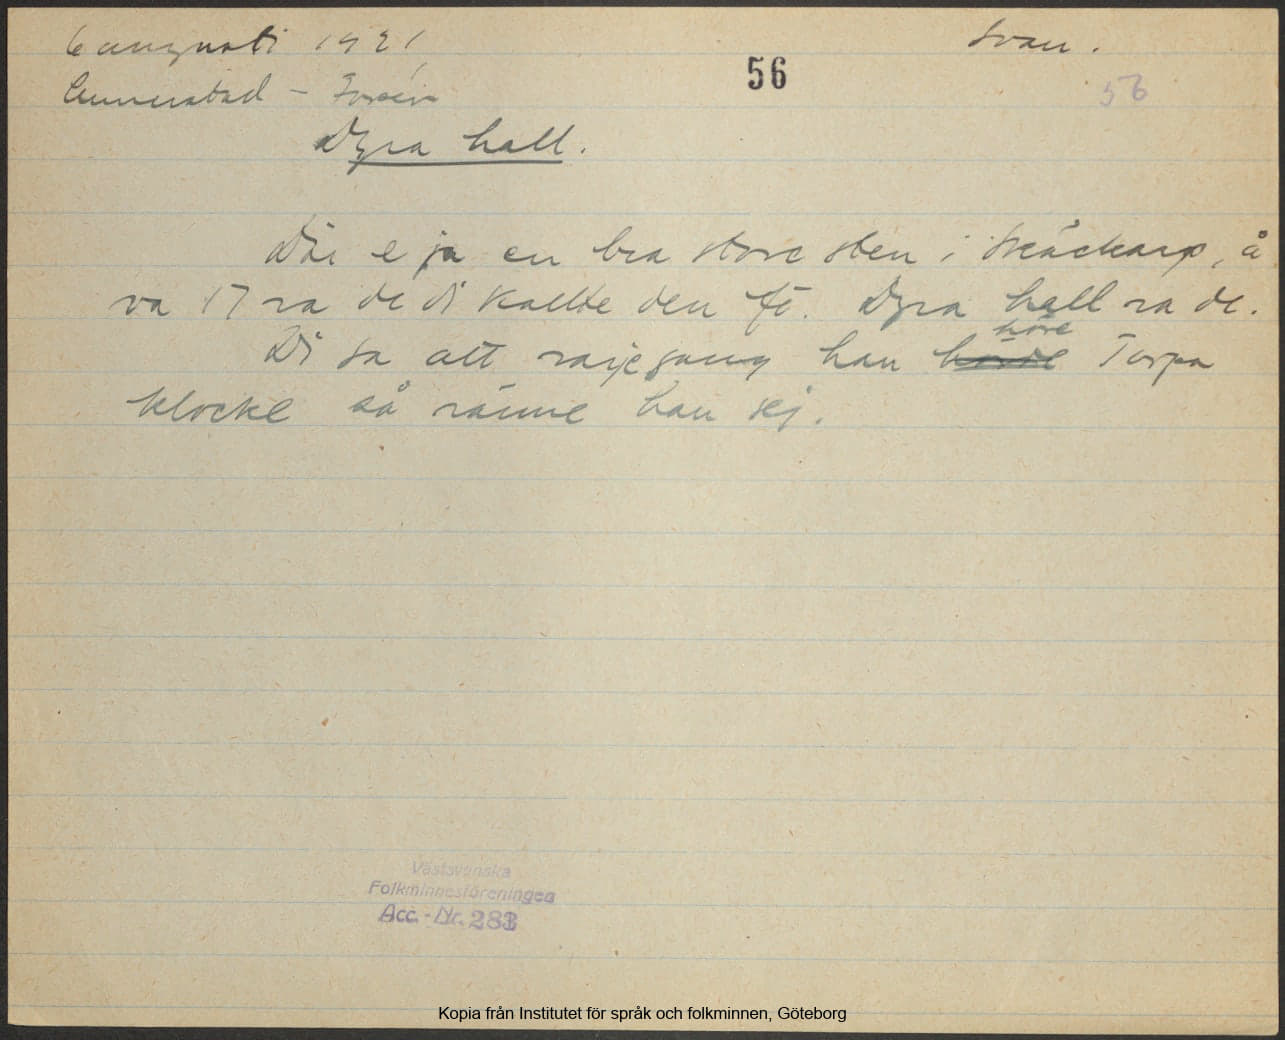 6 augusti 1921
Svan.
56
56
Annerstad -
Dyra hall.
Där e ja en bra store sten i Skäckarp, å
va 17 va de di kallte den fö. Dyra hall va de.
Di sa att varje gång han höre Torpa
klocke så vänne han sej.
Västsvenska
Folkminnesföreningen
Acc.-Nr. 283
Kopia från Institutet för språk och folkminnen, Göteborg